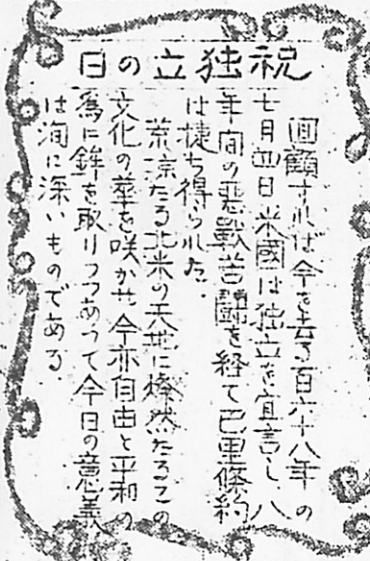 祝独立の日
回顧すれば今を去る百六十八年の
七月四日米國は独立を宣言し、八
年间の悪戰苦鬪を経て巴里條約
は捷ち得られた.
荒涼たる北米の天地に燦然たるこの
文化の華を咲かせ今亦自由と平和の
為に鉾を取りつつあつて今日の意義
は洵に深いものである.